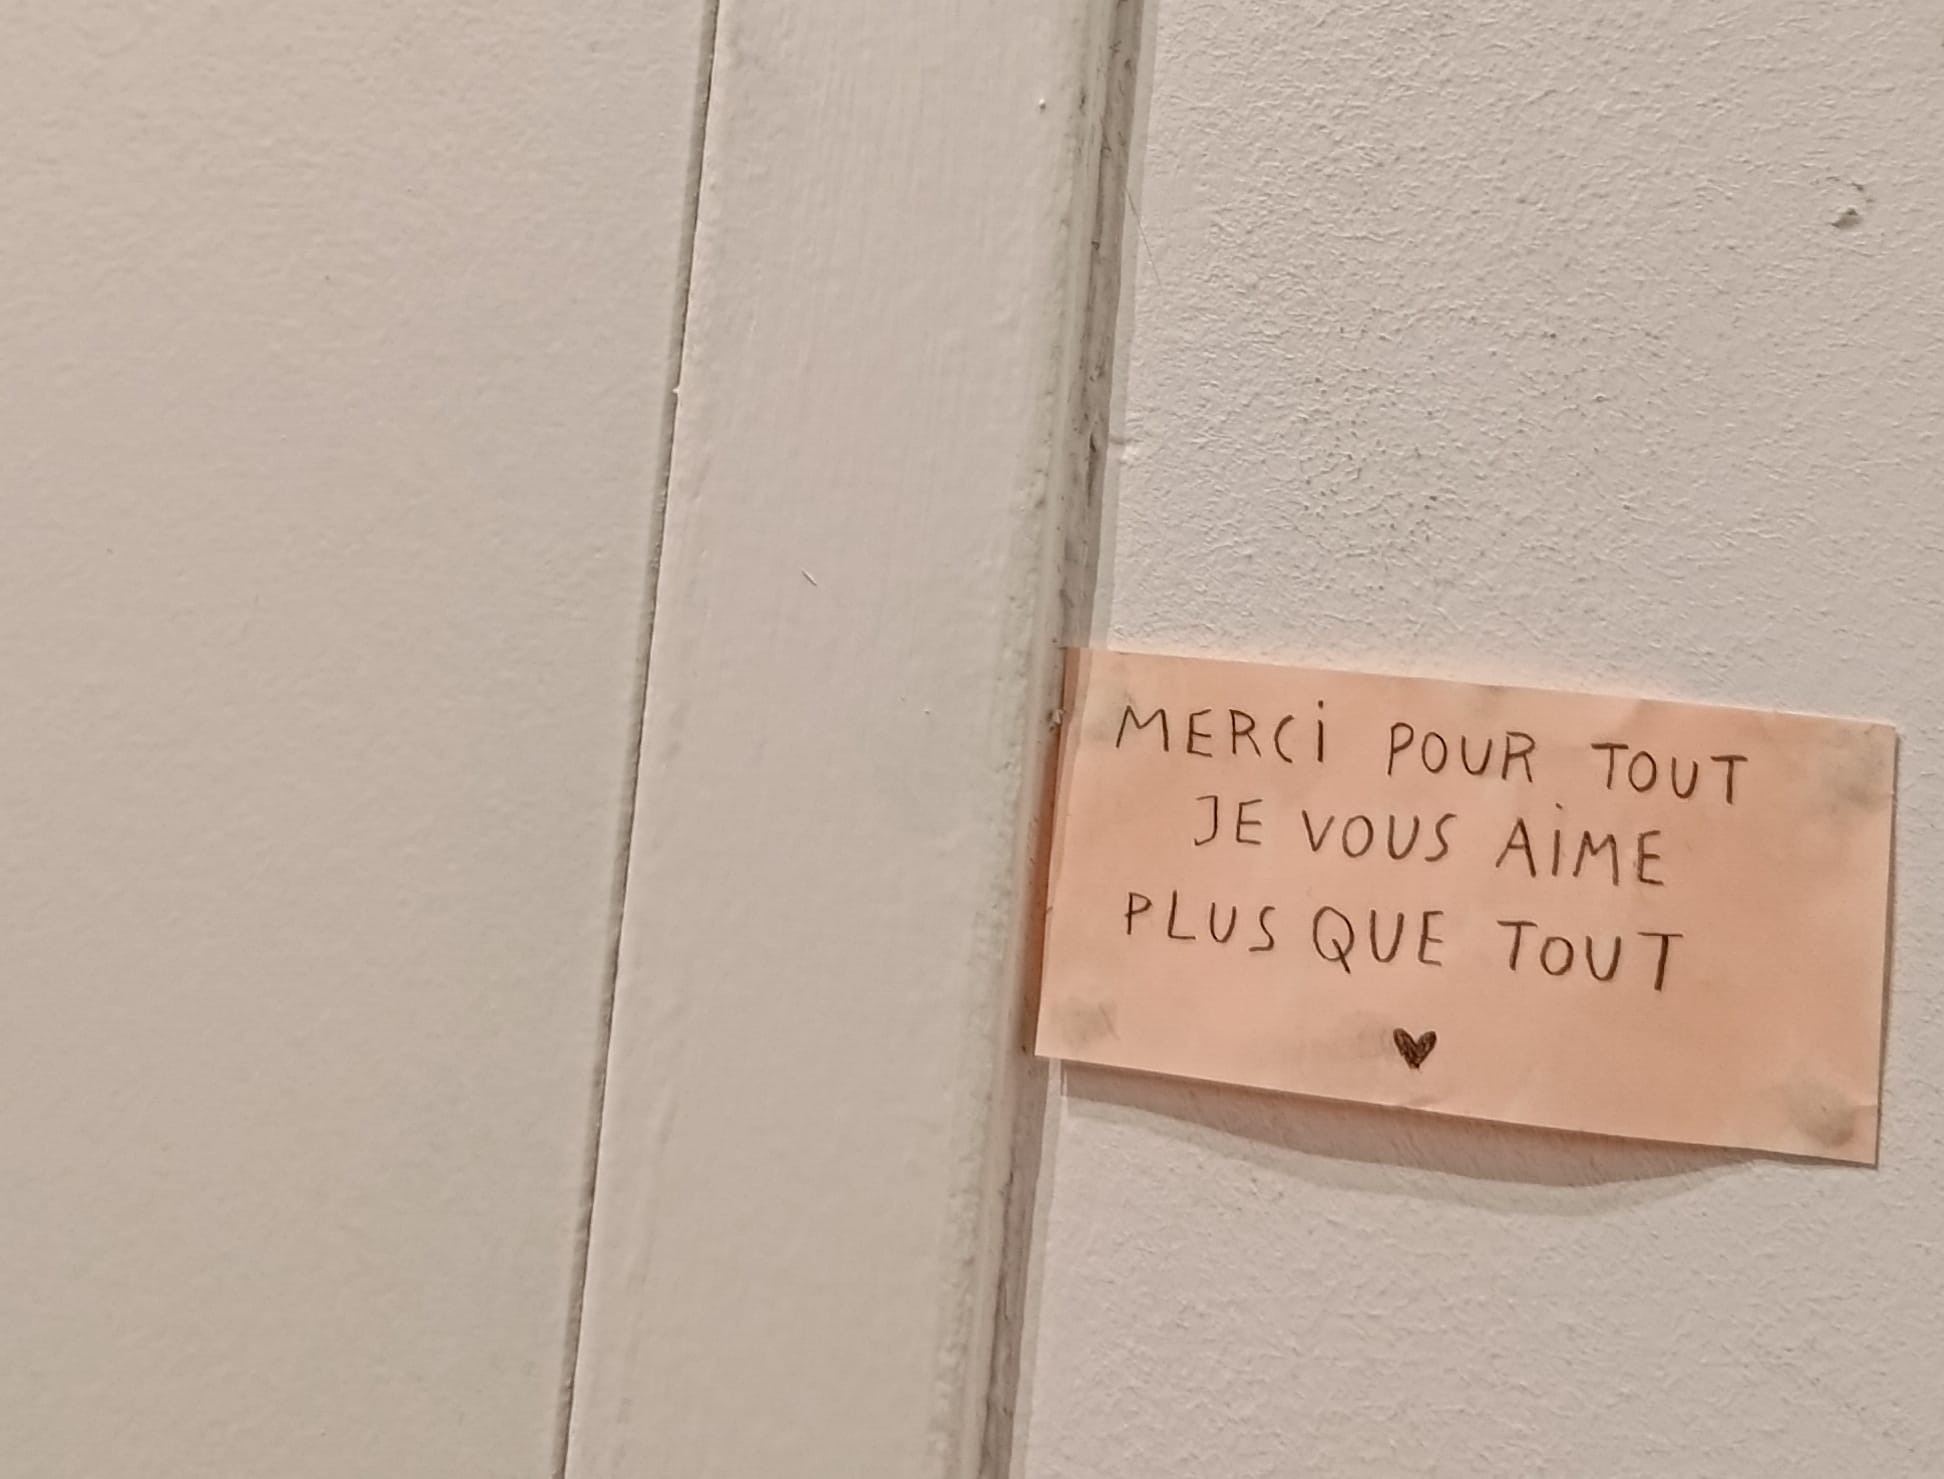 MERCi POUR TOUT
JE VOUS AiME
PLUS QUE TOUT
♥